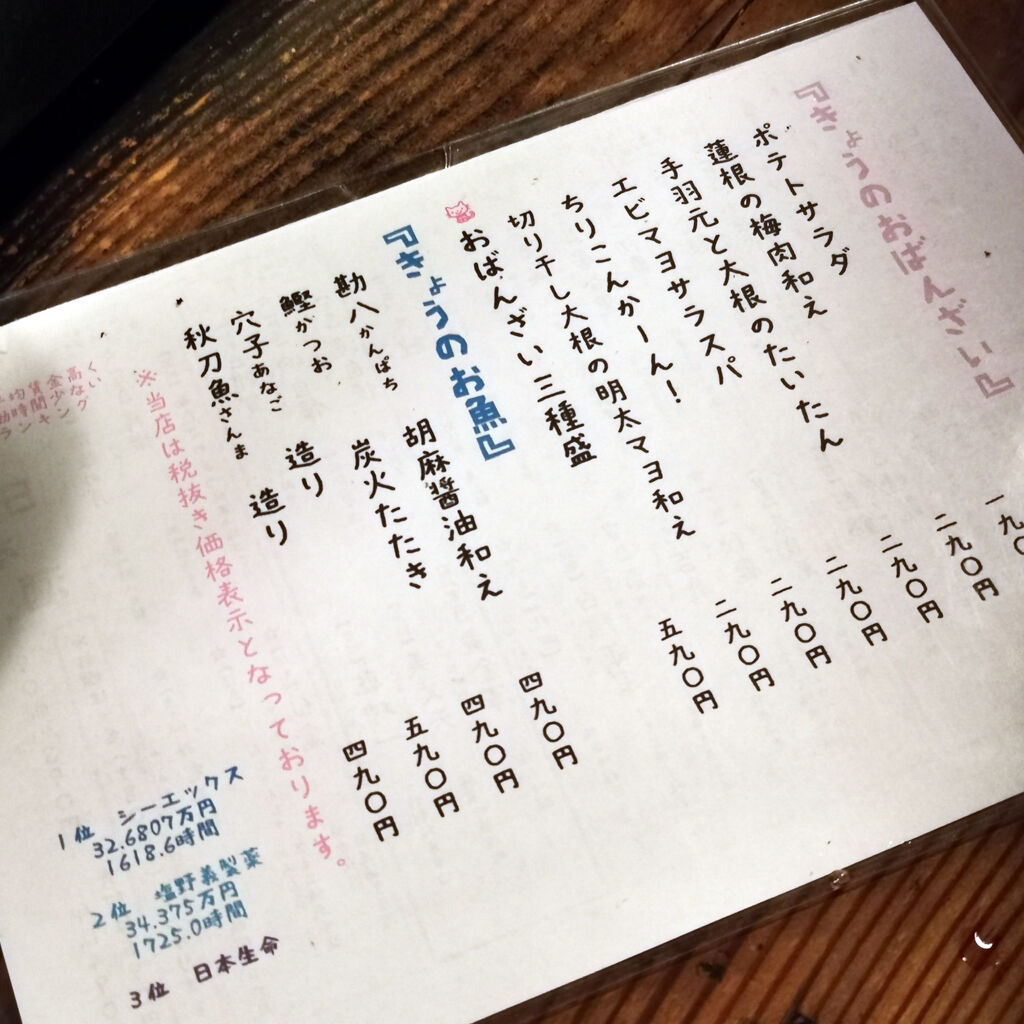 『きょうのおばんざい』
ポテトサラダ 一九〇
蓮根の梅肉和え 二九〇円
手羽元と大根のたいたん 二九〇円
エビマヨサラスパ 二九〇円
ちりこんかーん! 二九〇円
切り干し大根の明太マヨ和え 二九〇円
おばんざい三種盛 五九〇円
『きょうのお魚』
勘八かんぱち 胡麻醤油和え 四九〇円
鰹かつお 炭火たたき 四九〇円
穴子あなご 造り 五九〇円
秋刀魚さんま 造り 四九〇円
※当店は税抜き価格表示となっております。
均賃金高く
働時間少ない
ランキング
1位 シーエックス
32.6807万円
1618.6時間
2位 塩野義製薬
34.375万円
1725.0時間
3位 日本生命